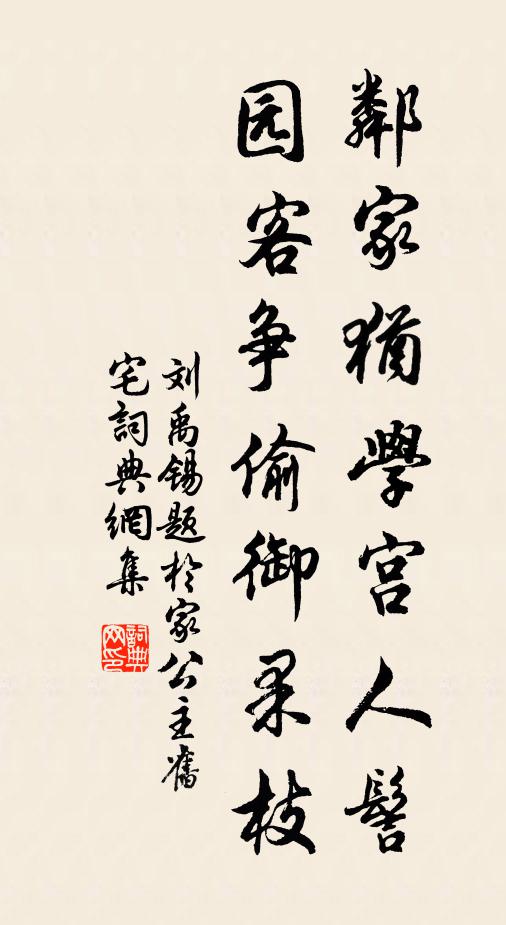 鄰家猶學宫人髻
园客争偷御果枝
刘禹锡题於家公主舊
宅詞典網集
詞典
网印